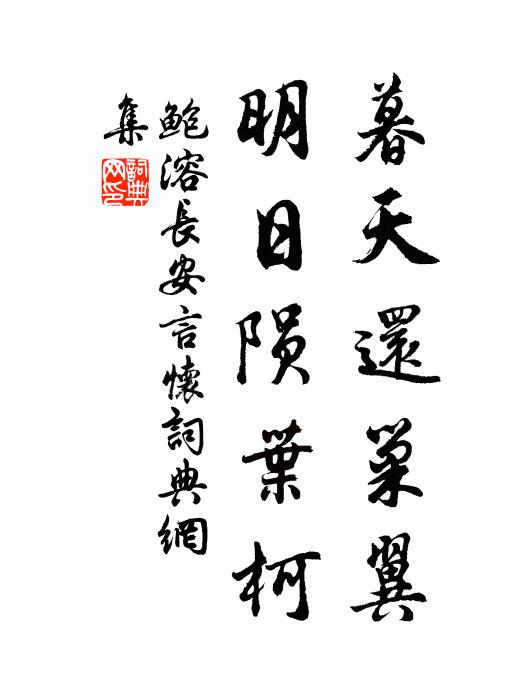 暮天還巢翼
明日隕葉柯
鮑溶長安言懷詞典網
集
詞典網印